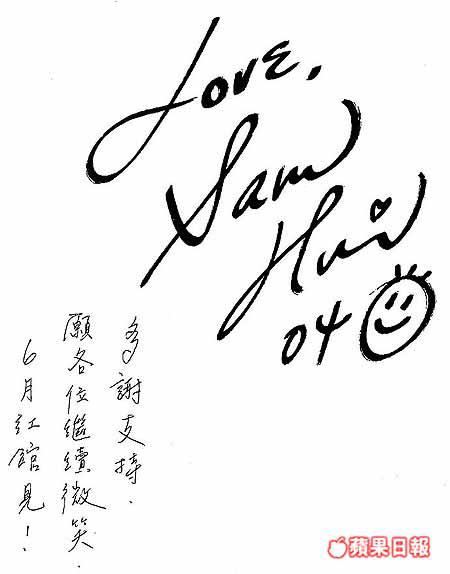 Love,
Sam
Hui
04
多謝支持.
願各位繼續微笑.
6月紅館見!
蘋果日報